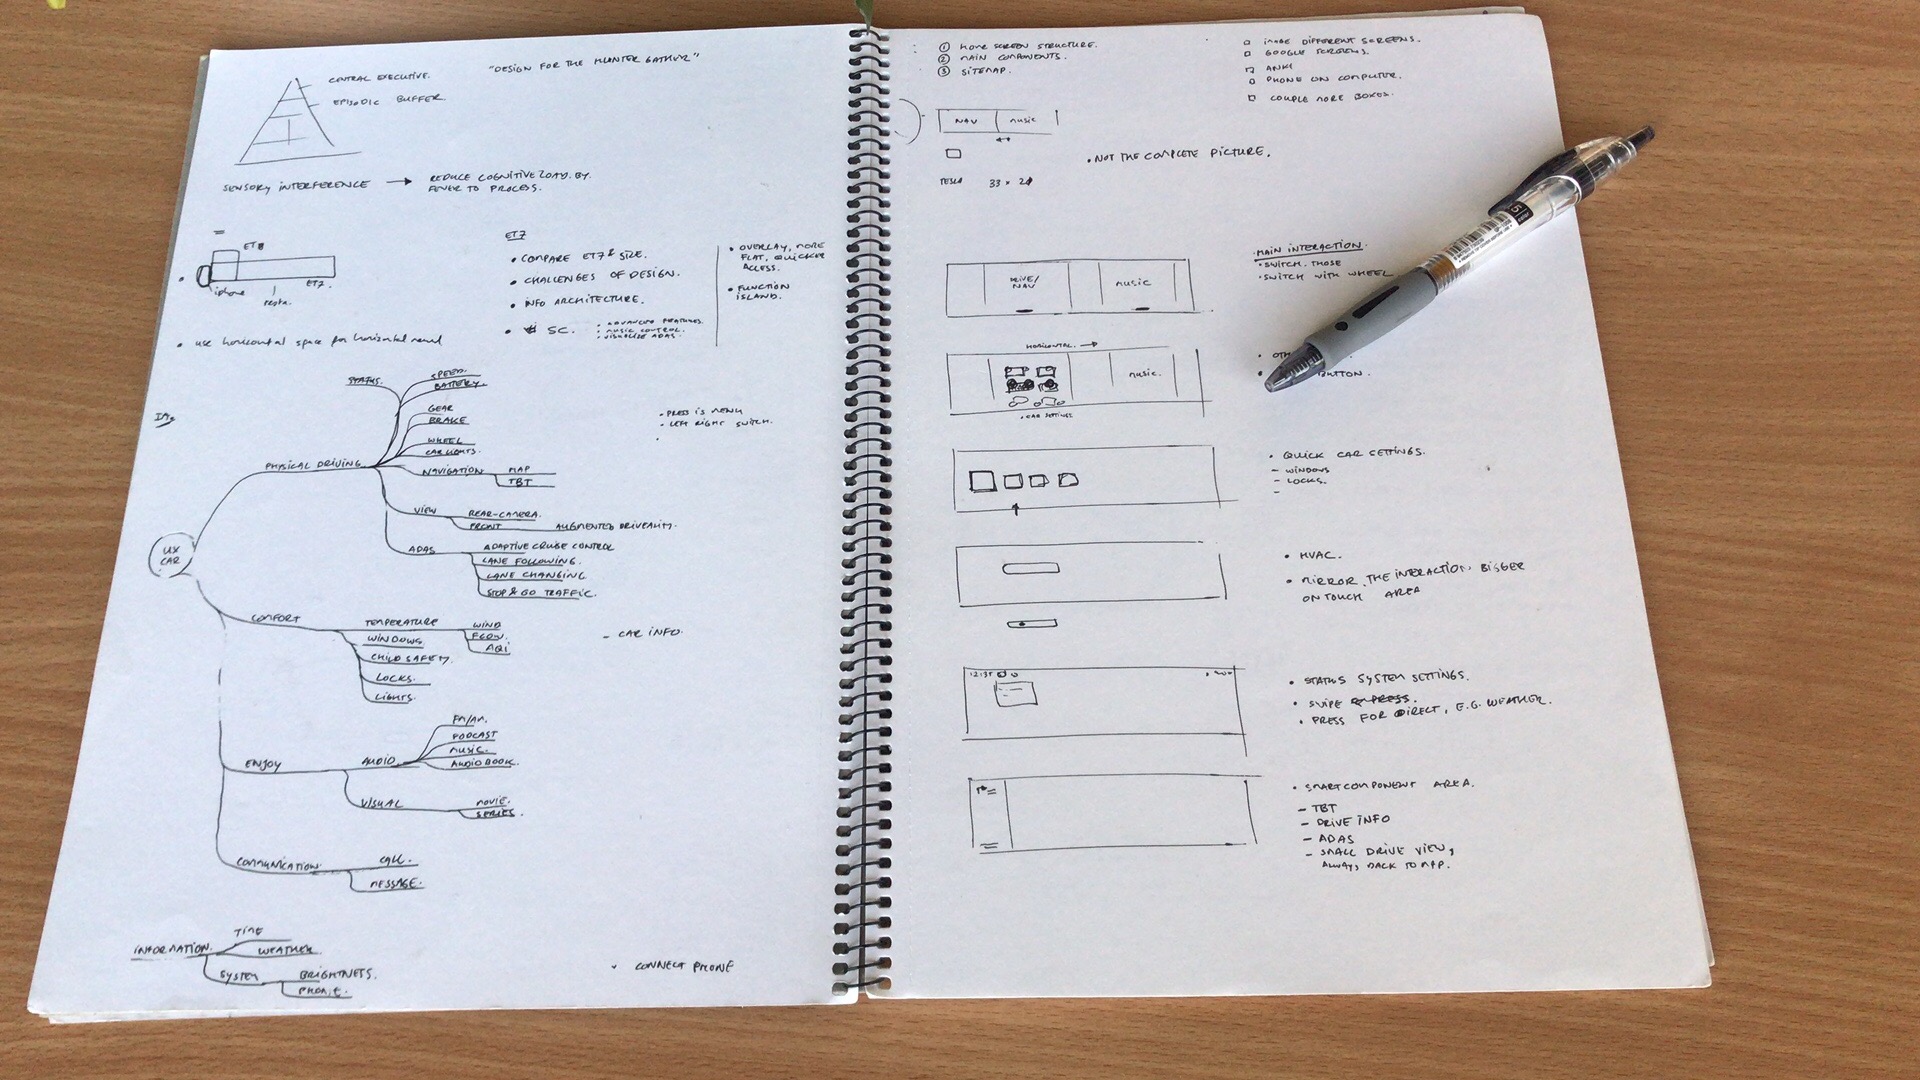 CENTRAL EXECUTIVE.
"DESIGN FOR THE HUNTER GATHER"
EPISODIC BUFFER
SENSORY INTERFERENCE → REDUCE COGNITIVE LOAD. BY.
FEVER TO PROCESS.
ET8
ET7
iphone
• use horizontal space for horizontal
ET7
• COMPARE ET7 & SIZE.
• CHALLENGES OF DESIGN.
• INFO ARCHITECTURE.
• SC.
• ADVANCED FEATURES.
• MUSIC CONTROL.
• VISUALIZE ADAS.
• OVERLAY, MORE
FLAT, QUICKER
ACCESS.
• FUNCTION
ISLAND.
• PRESS IS MENU
• LEFT RIGHT SWITCH.
UX
CAR
PHYSICAL DRIVING
STATUS.
SPEED.
BATTERY.
GEAR
BRAKE
WHEEL
CAR LIGHTS.
NAVIGATION
MAP
TBT
VIEW
REAR-CAMERA.
FRONT
AUGMENTED DRIVEALITY.
ADAS
ADAPTIVE CRUISE CONTROL
LANE FOLLOWING.
LANE CHANGING
STOP & GO TRAFFIC.
COMFORT
TEMPERATURE
WIND
FLOW.
AQI
WINDOWS
CHILD SAFETY.
LOCKS.
LIGHTS.
- CAR INFO.
ENJOY
AUDIO
FM/AM.
PODCAST
MUSIC.
AUDIOBOOK.
VISUAL
MOVIE.
SERIES.
COMMUNICATION.
CALL.
MESSAGE.
INFORMATION.
TIME
WEATHER.
SYSTEM
BRIGHTNESS.
PHONE.
CONNECT PHONE
① HOME SCREEN STRUCTURE.
② MAIN COMPONENTS.
③ SITEMAP.
IMAGE DIFFERENT SCREENS.
GOOGLE SCREENS.
ANKI
PHONE ON COMPUTER.
COUPLE MORE BOXES.
NAV
music
• NOT THE COMPLETE PICTURE.
TESLA
MAIN INTERACTION.
• SWITCH THOSE
• SWITCH WITH WHEEL
DRIVE/
NAV
music
HORIZONTAL. →
music.
• CAR SETTINGS.
BUTTON.
• QUICK CAR SETTINGS.
- WINDOWS
- LOCKS.
-
• HVAC.
• MIRROR THE INTERACTION BIGGER
ON TOUCH AREA
12:35
• STATUS SYSTEM SETTINGS.
• SWIPE
• PRESS FOR DIRECT, E.G. WEATHER.
• SMARTCOMPONENT AREA.
- TBT
- DRIVE INFO
- ADAS
- SMALL DRIVE VIEW,
ALWAYS BACK TO MAP.